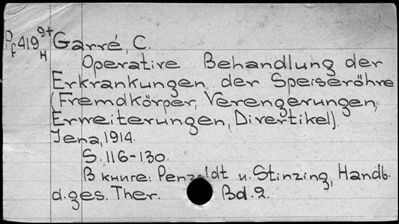 D 419 9+ Garré, C.
f H
Operative Behandlung der
Erkrankungen der Speiseröhre
(Fremdkörper, Verengerungen,
Erweiterungen, Divertikel).
Jena, 1914.
S. 116-130.
В книге: Penzoldt u. Stinzing, Handb.
d. ges. Ther. Bd. 2.